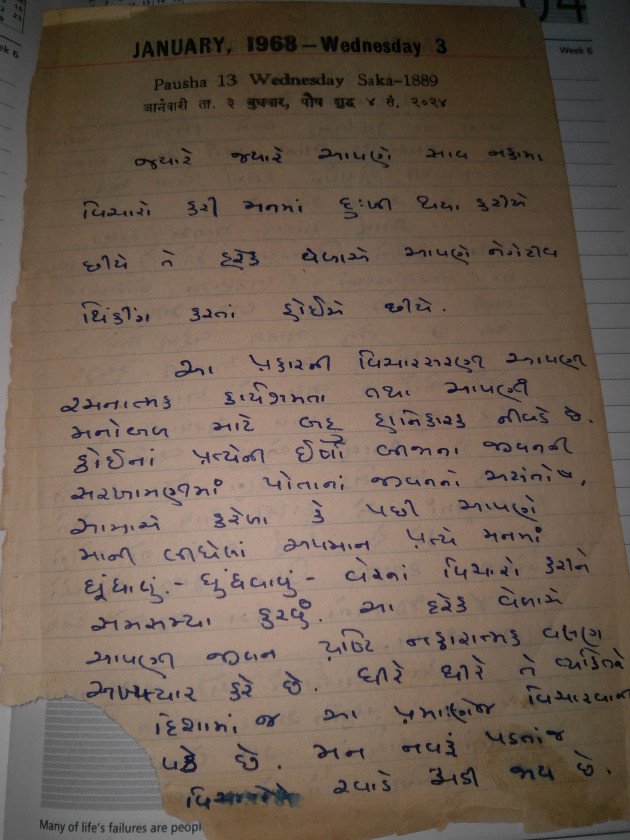 04
Week 6
ek 6
JANUARY, 1968 – Wednesday 3
Pausha 13 Wednesday Saka–1889
જાનેવારી તા. ૩ બુધવાર, પૌષ શુદ્ધ ૪ સં. ૨૦૨૪
જ્યારે જ્યારે આપણે સાવ નકામા
વિચારો કરી મનમાં દુઃખી થયા કરીએ
છીયે તે દરેક વેળાએ આપણે નેગેટીવ
થિંકીંગ કરતાં હોઈએ છીયે.
આ પ્રકારની વિચારસરણી આપણી
રચનાત્મક કાર્યક્ષમતા તથા આપણી
મનોબળ માટે બહુ હાનિકારક નીવડે છે.
કોઈનાં પ્રત્યેની ઈર્ષા બીજાના જીવનની
સરખામણીમાં પોતાનાં જીવનનો અસંતોષ,
સામાએ કરેલા કે પછી આપણે
માની લીધેલાં અપમાન પ્રત્યે મનમાં
ધૂંધાવું.- ધુંધવાવું - વેરનાં વિચારો કરીને
સમસમ્યા કરવું. આ દરેક વેળાએ
આપણી જીવન પ્રતિ નકારાત્મક વલણ
અખત્યાર કરે છે. ધીરે ધીરે તે વ્યક્તિને
દિશામાં જ આ પ્રમાણેજ વિચારવાની
પડે છે. મન નવરૂં પડતાંજ
રવાડે ચડી જાય છે.
Many of life's failures are peopl